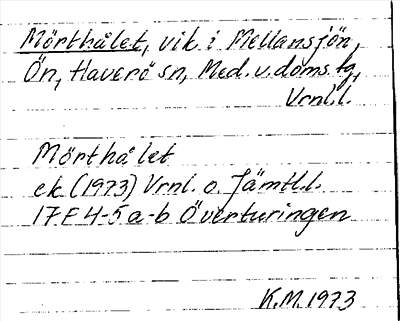 Mörthålet, vik i Mellansjön,
Ön, Haverö sn, Med. v. doms. tg,
Vrnl.l.
Mörthålet
ek (1973) Vrnl. o. Jämtl.l.
17F 4-5 a-b Överturingen
K.M. 1973